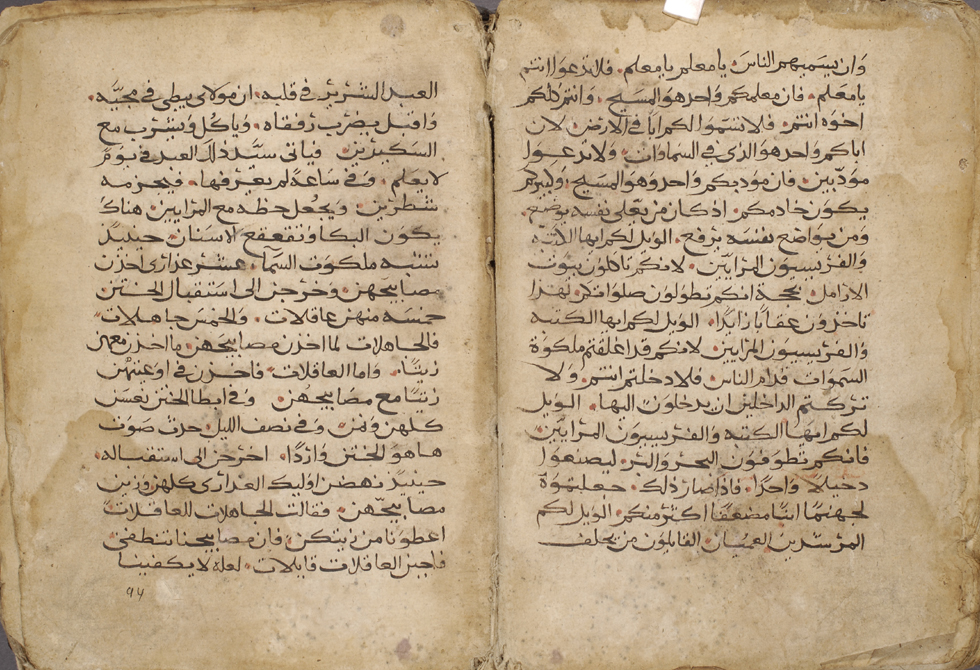 وان يسميهم الناس يا معلم يا معلم. فلا تدعوا انتم
يا معلم. فان معلمكم واحد هو المسيح. وانتم كلكم
اخوه انتم. فلا تسموا لكم ابا في الارض. لان
اباكم واحد هو الذي في السماوات. ولا تدعوا
مودبين. فان مودبكم واحد وهو المسيح. وكبيركم
يكون خادمكم. اذ كان من يعلي نفسه يوضع.
ومن يواضع نفسه يرفع. الويل لكم ايها الكتبه
والفريسيون المرايين. لانكم تاكلون بيوت
الارامل بحجة انكم تطولون صلواتكم. لهذا
تاخذون عقابا زايدا. الويل لكم ايها الكتبه
والفريسيون المرايين لانكم قد اغلقتم ملكوة
السموات قدام الناس. فلا دخلتم انتم. ولا
تركتم الداخلين ان يدخلون اليها. الويل
لكم ايها الكتبه والفريسيون المرايين.
فانكم تطوفون البحر والبر. ليصنعوا
دخيلا واحدا. فاذا صار ذلك. جعلتموه
لجهنم ابنا مضعفا اكثر منكم. الويل لكم
المرشدين العميان. القايلون من يحلف
العبد الشرير في قلبه. ان مولاي يبطي في مجيه.
واقبل يضرب رفقاه. وياكل ويشرب مع
السكيرين. فياتي سيد ذلك العبد في يوم
لا يعلم. وفي ساعة لم يعرفها. فيحزمه
شطرين. ويجعل حظه مع المرايين. هناك
يكون البكا وتقعقع الاسنان. حينيذ
تشبه ملكوت السما. عشر عذاري اخذن
مصابيحهن. وخرجن الي استقبال الختن
خمسه منهن عاقلات. والخمس جاهلات
فالجاهلات لما اخذن مصابيحهن. ما اخذن معهن
زيتا. واما العاقلات. فاخذن في اوعيتهن
زيتا مع مصابيحهن. وفي ابطا الختن نعسن
كلهن ونمن. وفي نصف الليل. حدث صوت
ها هو الختن واردا. اخرجن الي استقباله.
حينيذ نهضن اوليك العذاري كلهن وزين
مصابيحهن. فقالت الجاهلات للعاقلات
اعطونا من زيتكن. فان مصابيحنا تنطفي.
فاجبن العاقلات قايلات. لعله لا يكفينا